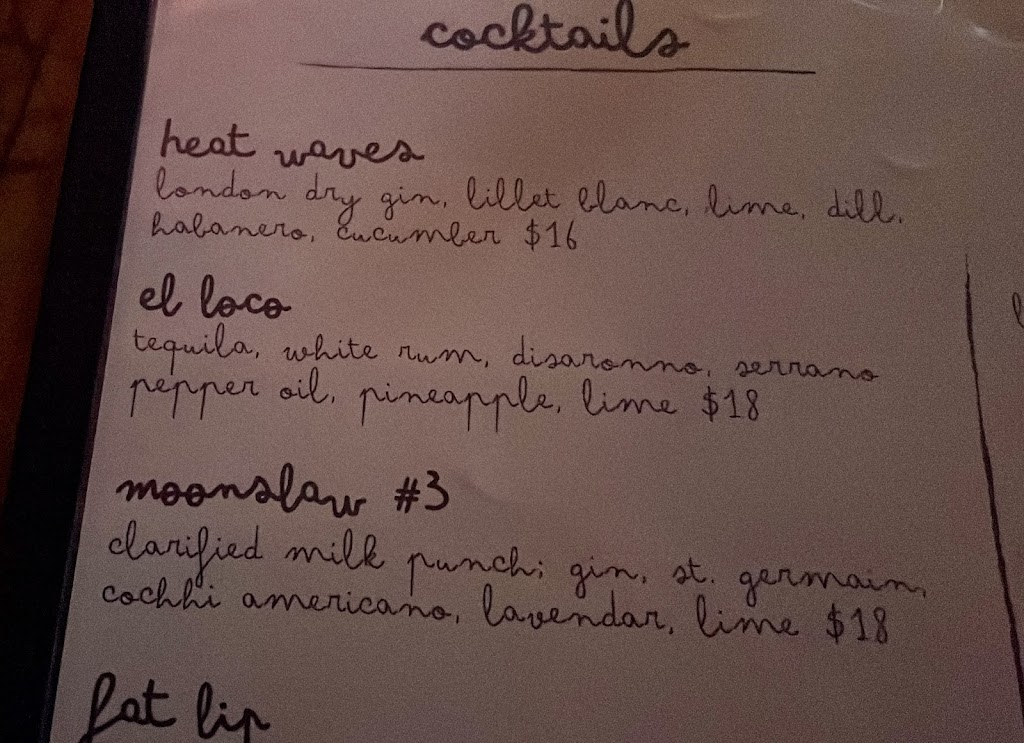 cocktails
heat waves
london dry gin, lillet blanc, lime, dill,
habanero, cucumber $16
el loco
tequila, white rum, disaronno, serrano
pepper oil, pineapple, lime $18
moonslaw #3
clarified milk punch; gin, st. germain,
cochhi americano, lavendar, lime $18
fat lip